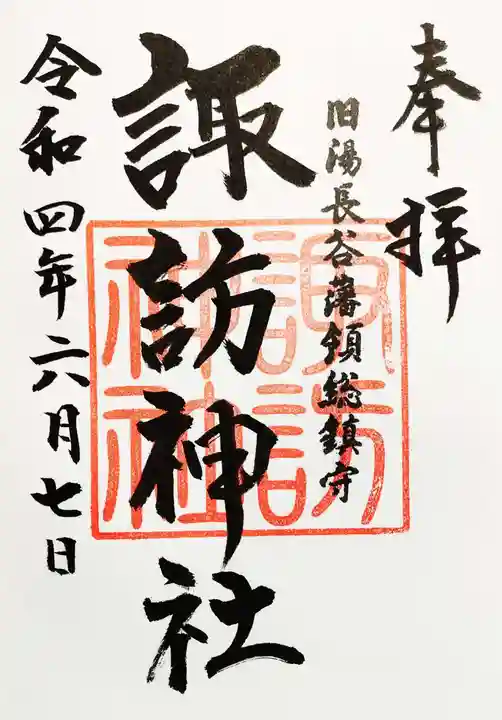 奉拝
旧湯長谷藩領総鎮守
諏訪神社
令和四年六月七日